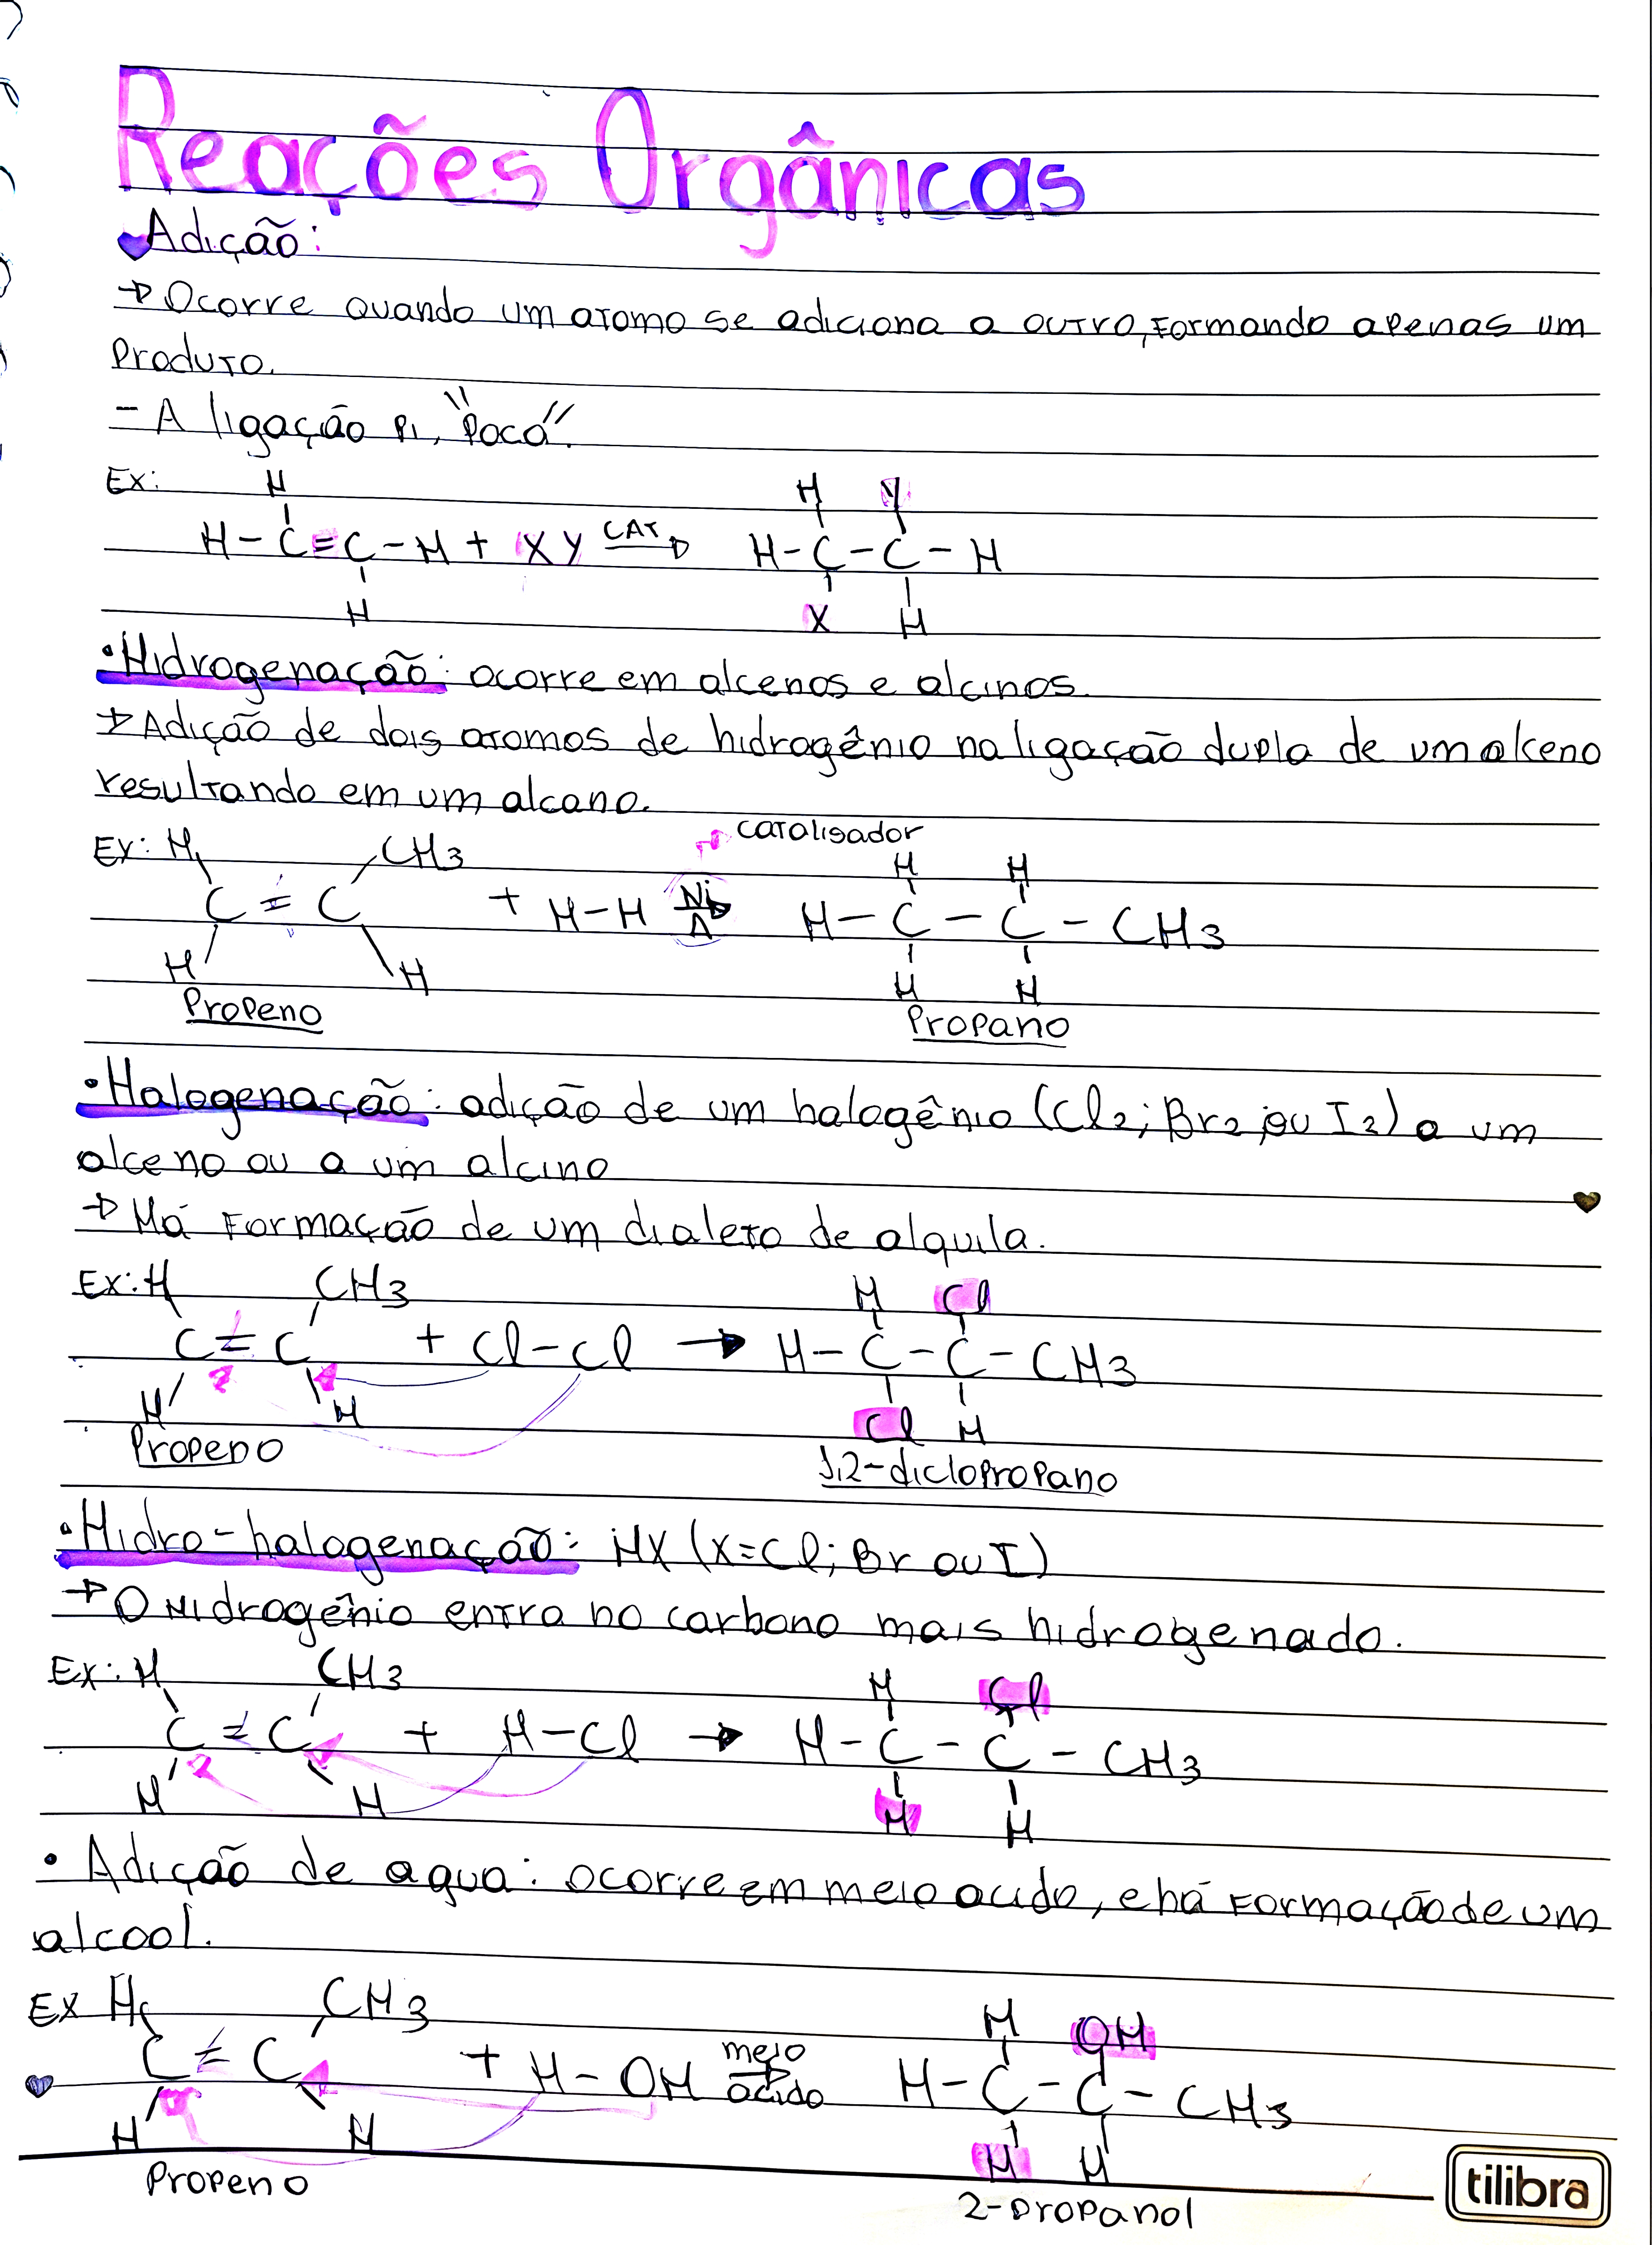 Reações Orgânicas
Adição:
→ Ocorre quando um atomo se adiciona a outro, formando apenas um
Produto.
- A ligação Pi, "Pocá".
Ex: H H Y
H - C = C - H + X Y CAT → H - C - C - H
H X H
• Hidrogenação: ocorre em alcenos e alcinos.
→ Adição de dois atomos de hidrogênio na ligação dupla de um alceno
resultando em um alcano.
catalisador
Ex: H CH3 H H
C = C + H - H Ni Δ → H - C - C - CH3
H H H H
Propeno Propano
• Halogenação: adição de um halogênio (Cl2; Br2 ou I2) a um
alceno ou a um alcino
→ Há Formação de um dialeto de alquila.
Ex: H CH3 H Cl
C = C + Cl - Cl → H - C - C - CH3
H H Cl H
Propeno 1,2-diclopropano
• Hidro-halogenação: HX (X=Cl; Br ou I)
→ O Hidrogênio entra no carbono mais hidrogenado.
Ex: H CH3 H Cl
C = C + H - Cl → H - C - C - CH3
H H H H
• Adição de agua: ocorre em meio acido, e há Formação de um
alcool.
Ex H CH3 H OH
C = C + H - OH meio → acido H - C - C - CH3
H H H H
Propeno 2-propanol
tilibra